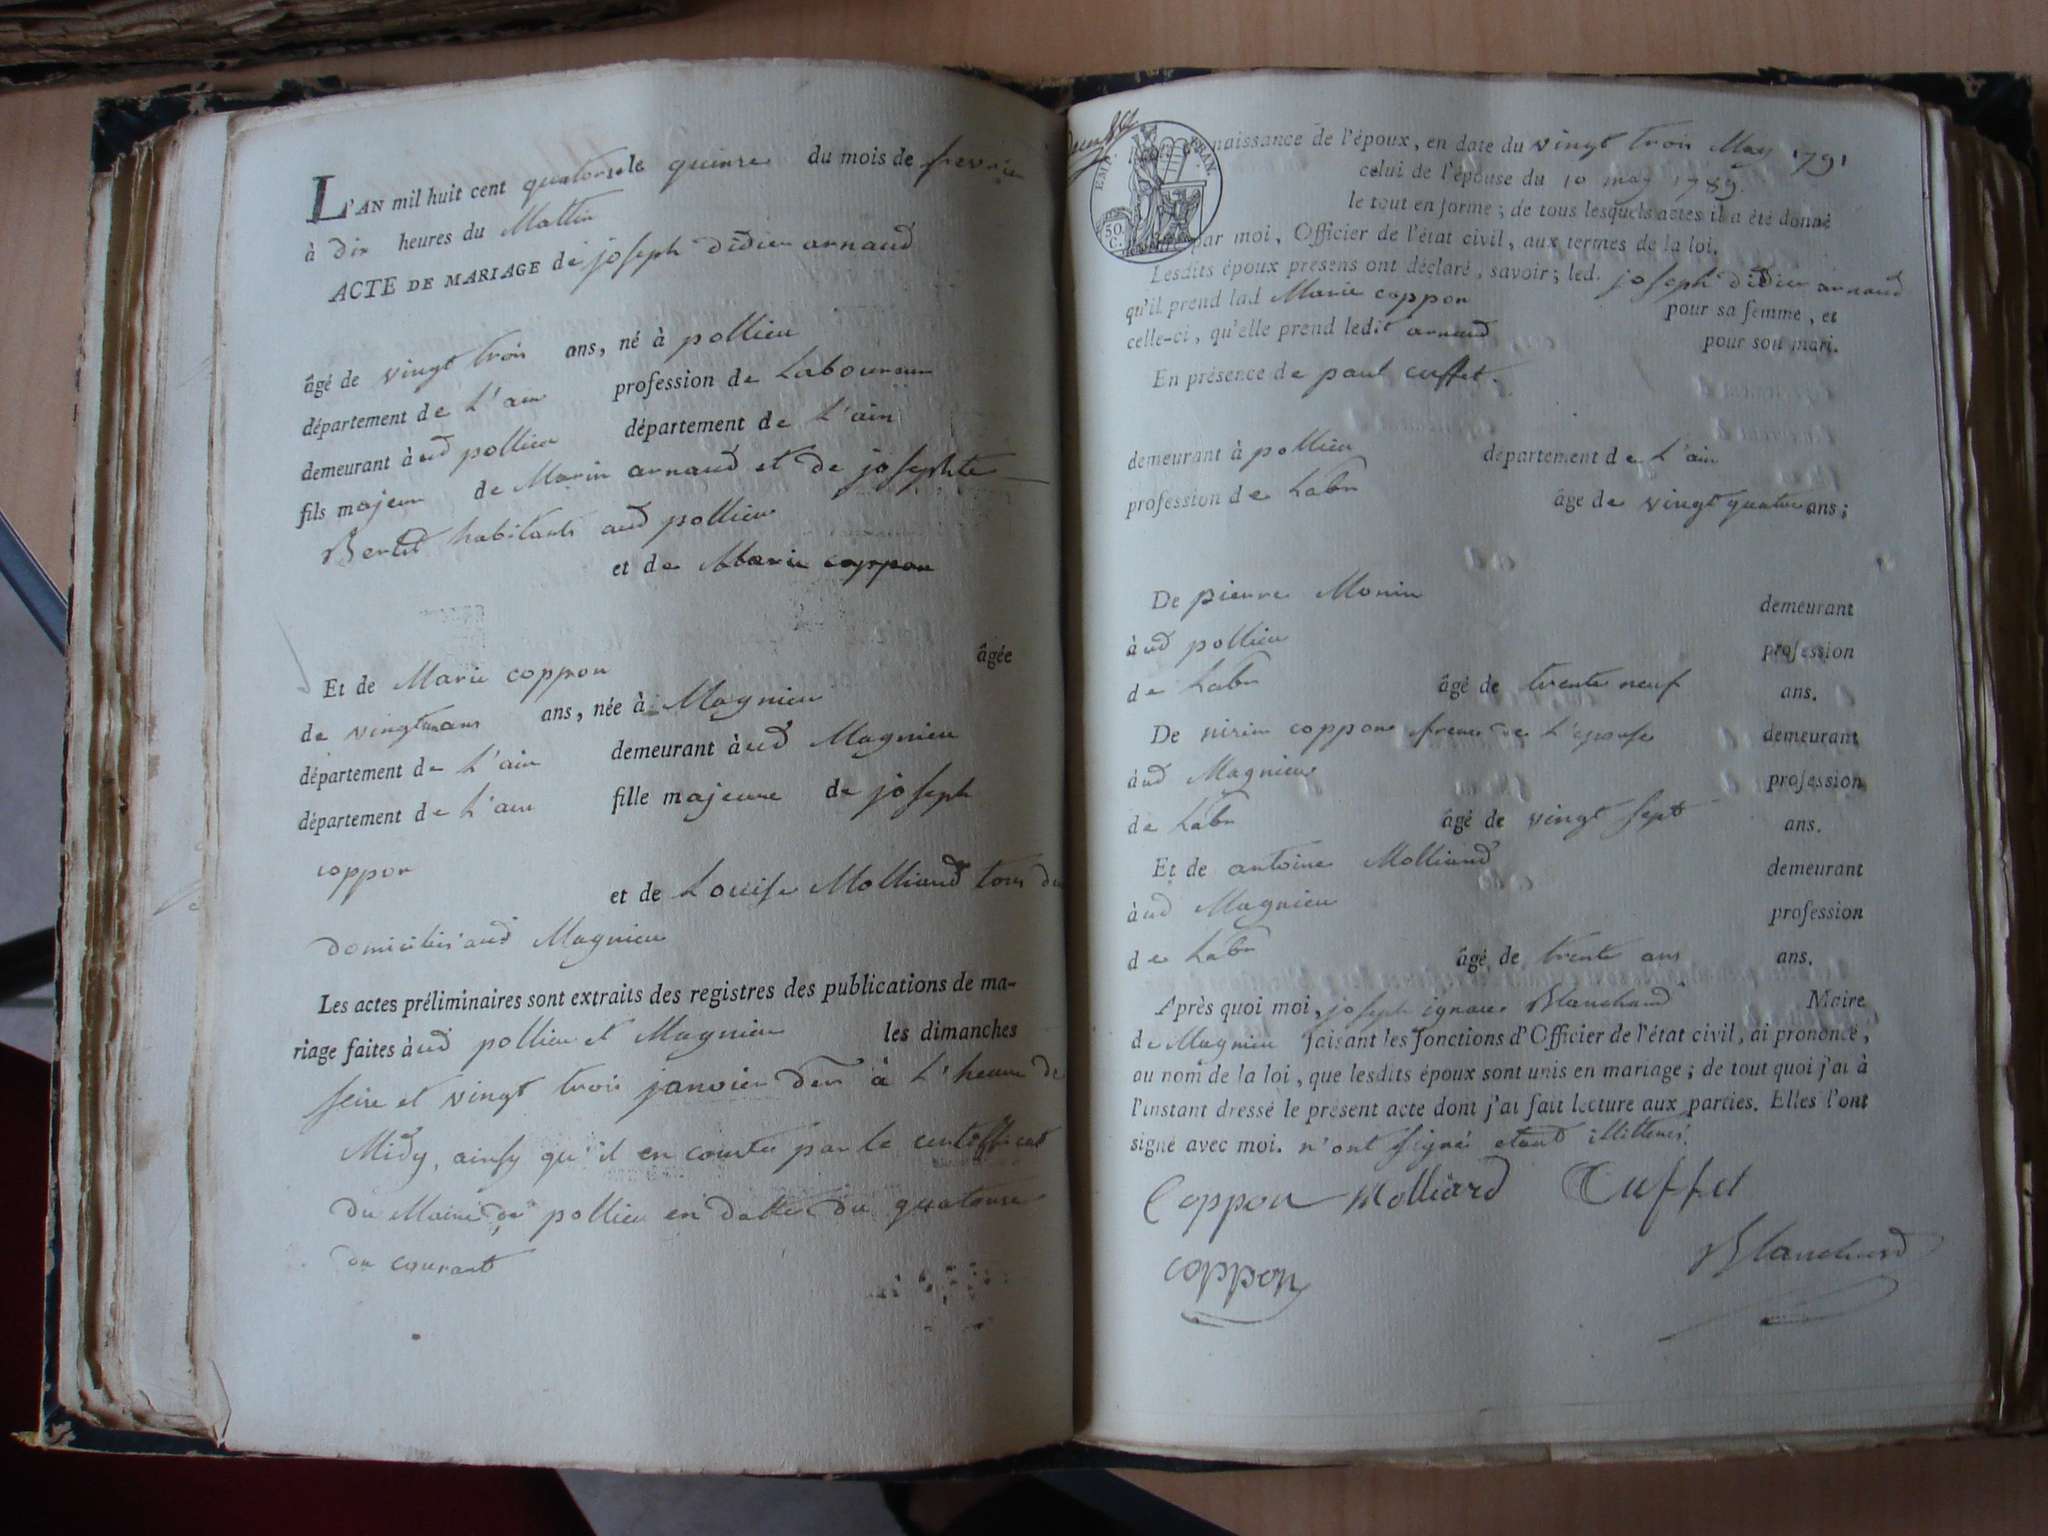 L'AN mil huit cent quatorze le quinze du mois de fevrier
à dix heures du Mattin
ACTE DE MARIAGE de joseph didier arnaud
âgé de vingt trois ans, né à pollieu
département de L'ain profession de Laboureur
demeurant àud pollieu département de L'ain
fils majeur de Marin arnaud et de josephte
habitants aud pollieu
et de Marie coppon
Et de Marie coppon âgée
de ans, née à Magnieu
département de L'ain demeurant àud Magnieu
département de L'ain fille majeure de joseph
coppon
et de Louise Molliand tous deux
domiciliés aud Magnieu
Les actes préliminaires sont extraits des registres des publications de ma-
riage faites àud pollieu et Magnieu les dimanches
seize et vingt trois janvier à L'heure de
Midy, ainsy qu'il en conste par le certifficat
du Maire de pollieu en datte du quatorze
du courant
naissance de l'époux, en date du vingt trois May 1791
celui de l'épouse du 10 may 1789.
le tout en forme; de tous lesquels actes il a été donné
par moi, Officier de l'état civil, aux termes de la loi.
Lesdits époux présens ont déclaré, savoir; led. joseph didier arnaud
qu'il prend lad Marie coppon pour sa femme, et
celle-ci, qu'elle prend ledit arnaud pour son mari.
En présence de paul cuffet.
demeurant à pollieu département de L'ain
profession de Labr âgé de vingt quatre ans;
De pierre Monin demeurant
àud pollieu profession
de Labr âgé de trente neuf ans.
De coppon frere de L'epouse demeurant
àud Magnieu profession
de Labr âgé de vingt sept ans.
Et de antoine Molliand demeurant
àud Magnieu profession
de Labr âgé de trente ans ans.
Après quoi moi, joseph ignace Blanchard Maire
de Magnieu faisant les fonctions d'Officier de l'état civil, ai prononcé,
au nom de la loi, que lesdits époux sont unis en mariage; de tout quoi j'ai à
l'instant dressé le présent acte dont j'ai fait lecture aux parties. Elles l'ont
signé avec moi. n'ont signé etant illitterés.
Coppon Molliard Cuffet
coppon Blanchard
EMP. FRAN.
50.
C.